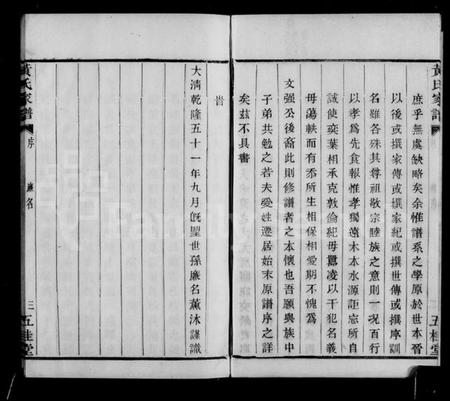 黃氏家譜
五桂堂
庶乎無處缺略矣余惟譜系之學原於世本晉
以後或撰家傳或撰家紀或撰世傳或撰序訓
名雖各殊其尊祖敬宗睦族之意則一况百行
以孝爲先食報惟孝獨遠木本水源詎忘所自
誠使奕葉相承克敦倫紀毋囂凌以干犯名義
毋蕩軼而有忝所生相保相愛期不愧爲
文强公後裔此則修譜者之本懷也吾願與族中
子弟共勉之若夫受姓遷居始末原譜序之詳
矣茲不具書
旹
大清乾隆五十一年九月旣朢世孫廉名薰沐謹識
黃氏家譜
序
廉名
三
五桂堂